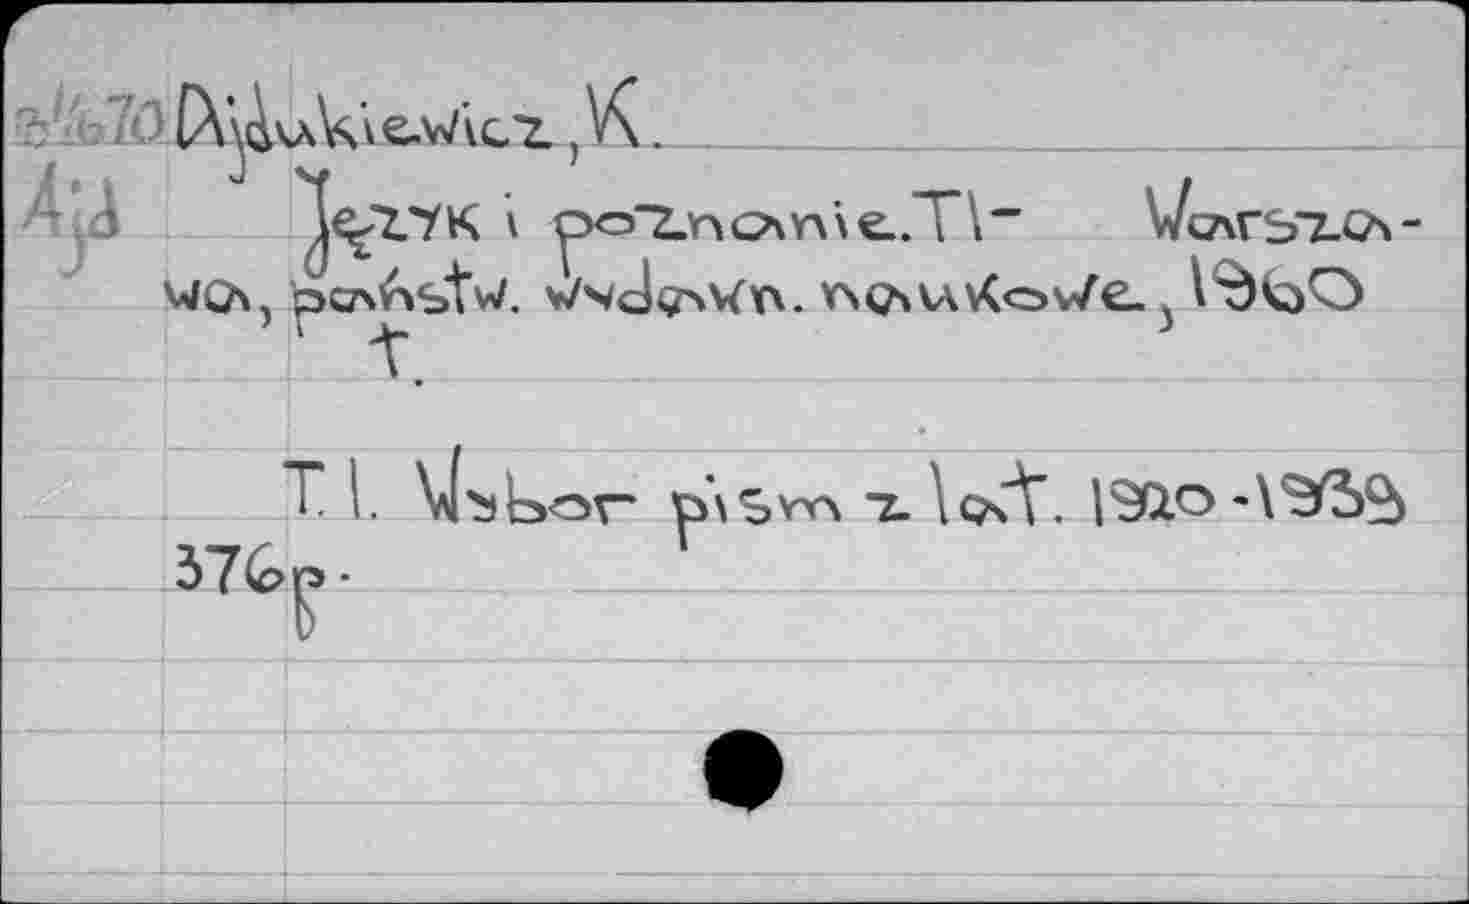 Ajdukiewicz, K.
Ajd Język i poznanie. T 1- Warsza-
wa, państw. wydawn. naukowe, 1960
t.
T. 1. Wybor pism z lat. 1920-1939
376p.